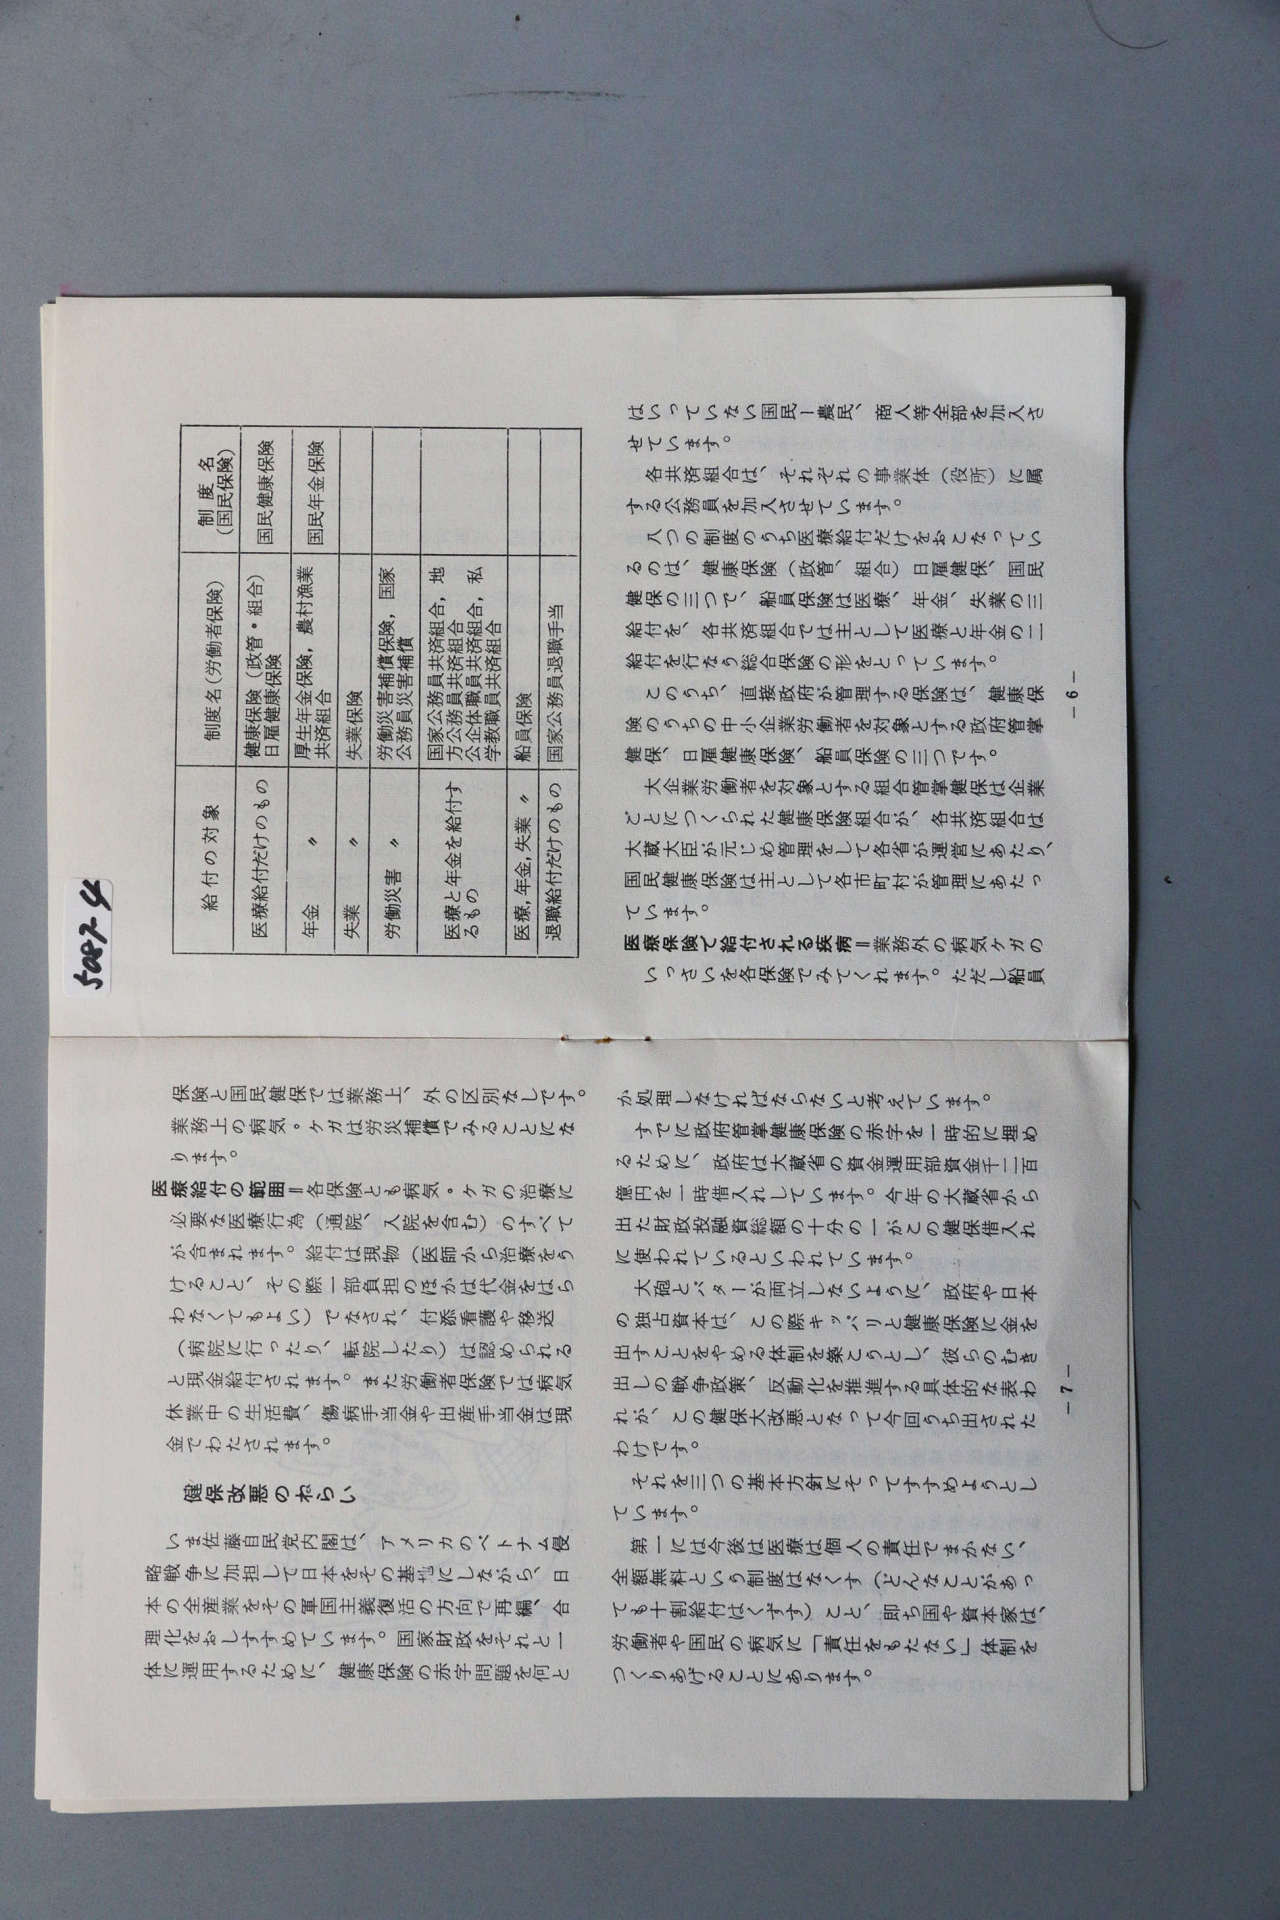 5087-4
給付の対象
制度名(労働者保険)
制度名
(国民保険)
医療給付だけのもの
健康保険(政管・組合)
日雇健康保険
国民健康保険
年金 〃
厚生年金保険, 農村漁業
共済組合
国民年金保険
失業 〃
失業保険
労働災害 〃
労働災害補償保険, 国家
公務員災害補償
医療と年金を給付す
るもの
国家公務員共済組合, 地
方公務員共済組合
公企体職員共済組合, 私
学教職員共済組合
医療, 年金, 失業 〃
船員保険
退職給付だけのもの
国家公務員退職手当
はいっていない国民ー農民、商人等全部を加入さ
せています。
各共済組合は、それぞれの事業体(役所)に属
する公務員を加入させています。
八つの制度のうち医療給付だけをおこなってい
るのは、健康保険(政管、組合)日雇健保、国民
健保の三つで、船員保険は医療、年金、失業の三
給付を、各共済組合では主として医療と年金の二
給付を行なう総合保険の形をとっています。
このうち、直接政府が管理する保険は、健康保
険のうちの中小企業労働者を対象とする政府管掌
健保、日雇健康保険、船員保険の三つです。
大企業労働者を対象とする組合管掌健保は企業
ごとにつくられた健康保険組合が、各共済組合は
大蔵大臣が元じめ管理をして各省が運営にあたり、
国民健康保険は主として各市町村が管理にあたっ
ています。
医療保険で給付される疾病=業務外の病気ケガの
いっさいを各保険でみてくれます。ただし船員
-6-
保険と国民健保では業務上、外の区別なしです。
業務上の病気・ケガは労災補償でみることにな
ります。
医療給付の範囲=各保険とも病気・ケガの治療に
必要な医療行為(通院、入院を含む)のすべて
が含まれます。給付は現物(医師から治療をう
けること、その際一部負担のほかは代金をはら
わなくてもよい)でなされ、付添看護や移送
(病院に行ったり、転院したり)は認められる
と現金給付されます。また労働者保険では病気
休業中の生活費、傷病手当金や出産手当金は現
金でわたされます。
健保改悪のねらい
いま佐藤自民党内閣は、アメリカのベトナム侵
略戦争に加担して日本をその基地にしながら、日
本の全産業をその軍国主義復活の方向で再編、合
理化をおしすすめています。国家財政をそれと一
体に運用するために、健康保険の赤字問題を何と
か処理しなければならないと考えています。
すでに政府管掌健康保険の赤字を一時的に埋め
るために、政府は大蔵省の資金運用部資金千二百
億円を一時借入れしています。今年の大蔵省から
出た財政投融資総額の十分の一がこの健保借入れ
に使われているといわれています。
大砲とバターが両立しないように、政府や日本
の独占資本は、この際キッパリと健康保険に金を
出すことをやめる体制を築こうとし、彼らのむき
出しの戦争政策、反動化を推進する具体的な表わ
れが、この健保大改悪となって今回うち出された
わけです。
それを三つの基本方針にそってすすめようとし
ています。
第一には今後は医療は個人の責任でまかない、
全額無料という制度はなくす(どんなことがあっ
ても十割給付はくずす)こと、即ち国や資本家は、
労働者や国民の病気に「責任をもたない」体制を
つくりあげることにあります。
-7-